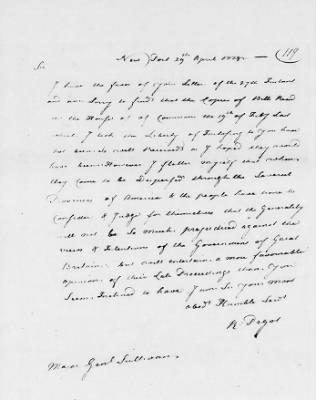 New Port 29th April 1778. — (119)
Sir
I have the favor of your Letter of the 27th Instant
and am Sorry to find that the Copies of Bills Read
in the House of Commons the 19th of Feby Last
which I took the Liberty of Inclosing to you have
not been so well Received as I hoped they would
have been. However I flatter myself that when
they Come to be Dispersed through the Several
Provinces of America & the people have time to
Consider & Judge for themselves that the Generality
will not be So much prejudiced against the
views & Intentions of the Government of Great
Britain, but will entertain a more favourable
opinion of their Late Proceedings than you
Seem Inclined to have I am Sir your most
obedt Humble Servt
R. Pigot
Major Genl Sullivan.